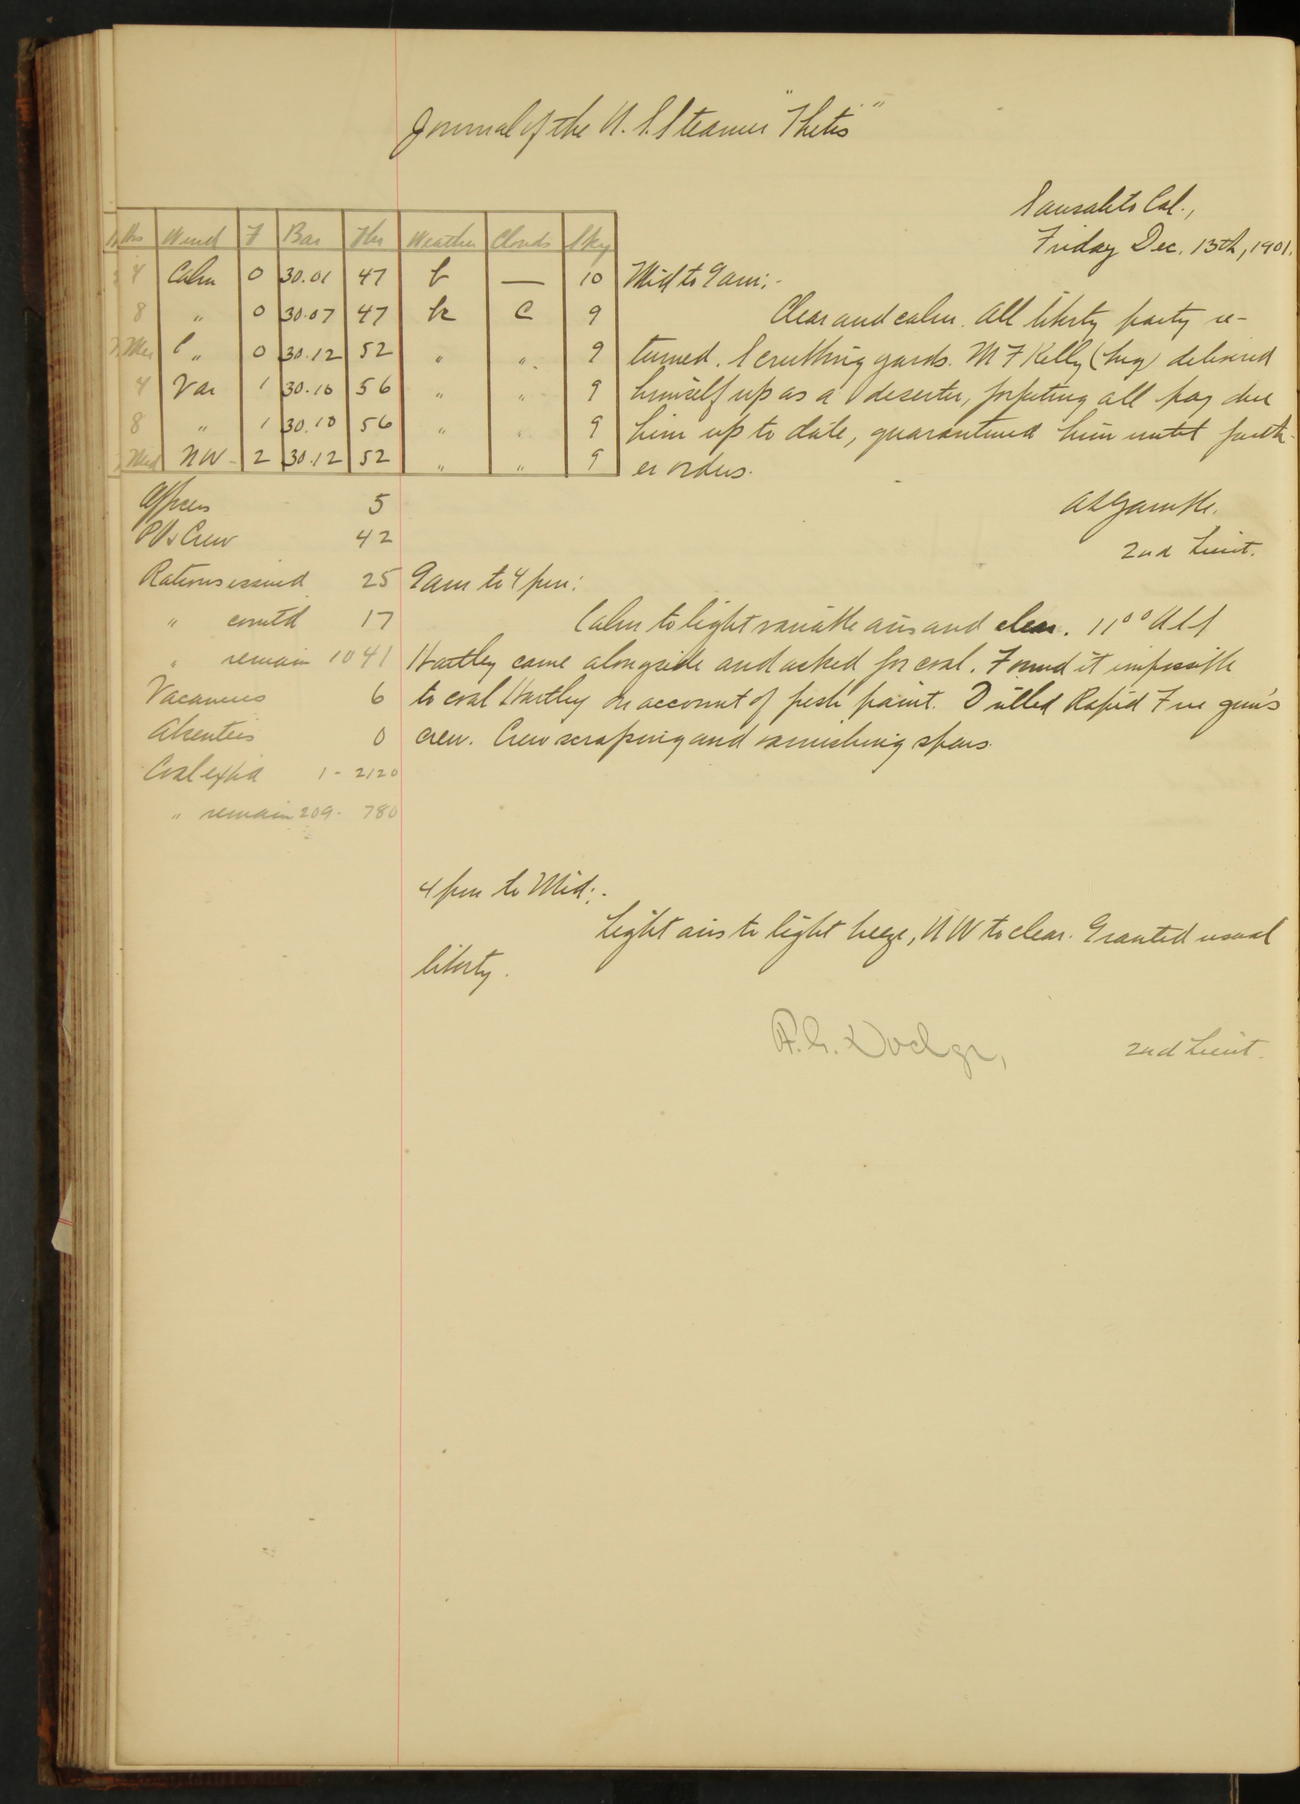 Journal of the U. S. Steamer "Thetis"
Sausalito Cal.,
Friday Dec. 13th, 1901.
Hrs Wind F Bar Thr Weather Clouds Sky
4 Calm 0 30.01 47 b — 10
8 " 0 30.07 47 bc C 9
Mer " 0 30.12 52 " " 9
4 Var 1 30.10 56 " " 9
8 " 1 30.10 56 " " 9
Mid NW 2 30.12 52 " " 9
Mid to 9 am:-
Clear and calm. All liberty party re-
turned. Scrubbing yards. M F Kelly delivered
himself up as a deserter, forfeiting all pay due
him up to date, quarantined him until furth-
er orders.
A L Gamble.
2nd Lieut.
Officers 5
P.O.s Crew 42
Rations issued 25
" comtd 17
" remain 1041
Vacancies 6
Absentees 0
Coal exp'd 1 - 2120
" remain 209 - 780
9 am to 4 pm:
Calm to light variable airs and clear. 11°° 
Hartley came alongside and asked for coal. Found it impossible
to coal Hartley on account of fresh paint. Drilled Rapid Fire gun's
crew. Crew scraping and varnishing spars.
4 pm to Mid:-
Light airs to light breeze, NW to clear. Granted usual
liberty.
Dodge, 2nd Lieut.